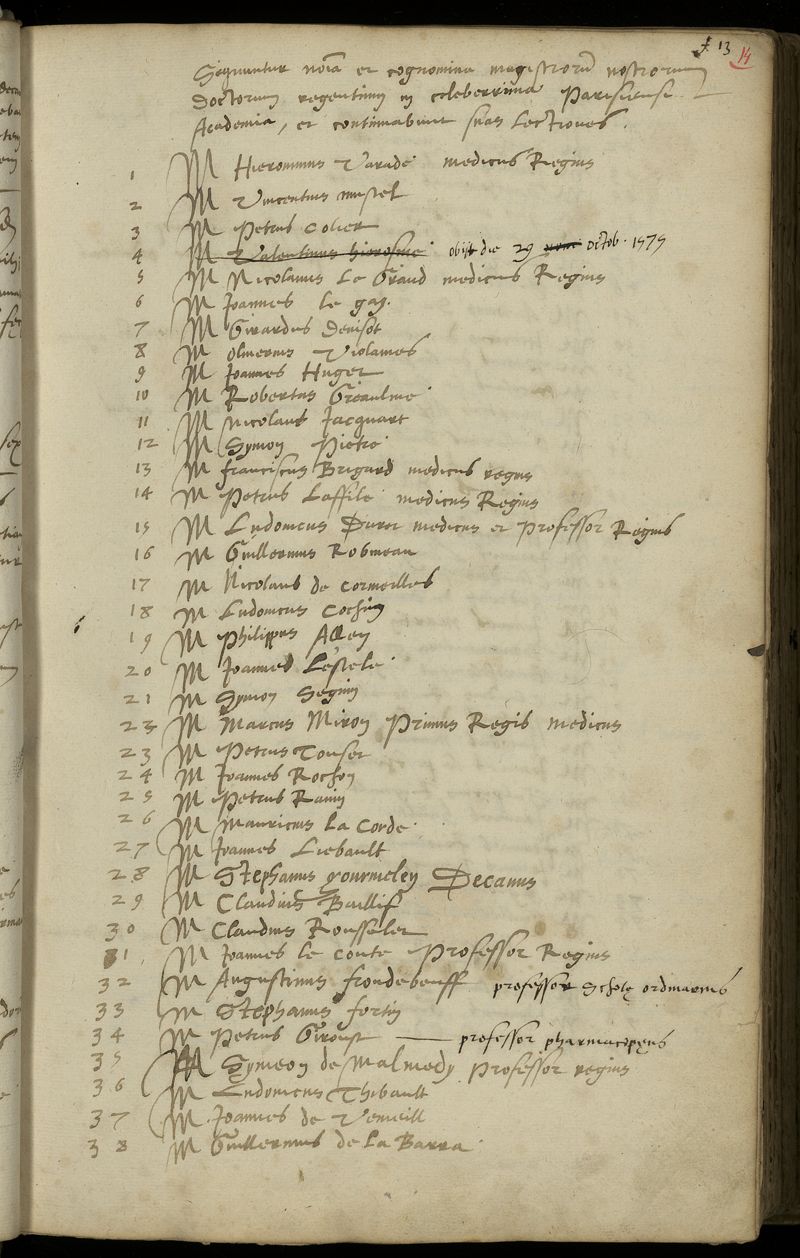 f. 13 14
Sequuntur noīa et cognomina magistrorū nostrorum
Doctorum regentium in celeberrima Parisiensi
Academia, et continuabunt suas Lectiones.
1 M Hieronimus Varade medicus Regius
2 M Vincentius mustel
3 M Petrus Colier
4 M Valentinus hierosme obijt die 29 octob. 1575
5 M Nicolaus Le Grand medicus Regius
6 M Joannes le gay.
7 M Girardus Denisot
8 M oliverius Violaines
9 M Joannes Huget
10 M Robertus Greaulme
11 M nicolaus Jacquart
12 M Symon Pietre
13 M franciscus Brigard medicus regius
14 M Petrus Laffile medicus Regius
15 M Ludovicus Duret medicus et Professor Regius
16 M Guillermus Robineau
17 M Nicolaus de Cormeilles
18 M Ludovicus Cochin
19 M Philippus Alley
20 M Joannes Lestele
21 M Symon Seguin
23 M Marcus Miron Primus Regis medicus
23 M Petrus Touset
24 M Joannes Rochon
25 M Petrus Ravin
26 M Mauricius La Corde
27 M Joannes Liebault
28 M Stephanus gourmelen Decanus
29 M Claudius Baillif
30 M Claudius Rousselet
31 M Joannes le Conte Professor Regius
32 M Augustinus frondebeuff professor Scholę ordinarius
33 M Stephanus fortin
34 M Petrus Giroust professor pharmacopęus
35 M Symeon de Malmedy Professor regius
36 M Ludovicus Thibault
37 M Joannes de Verneill
38 M Guillermus de La Barra